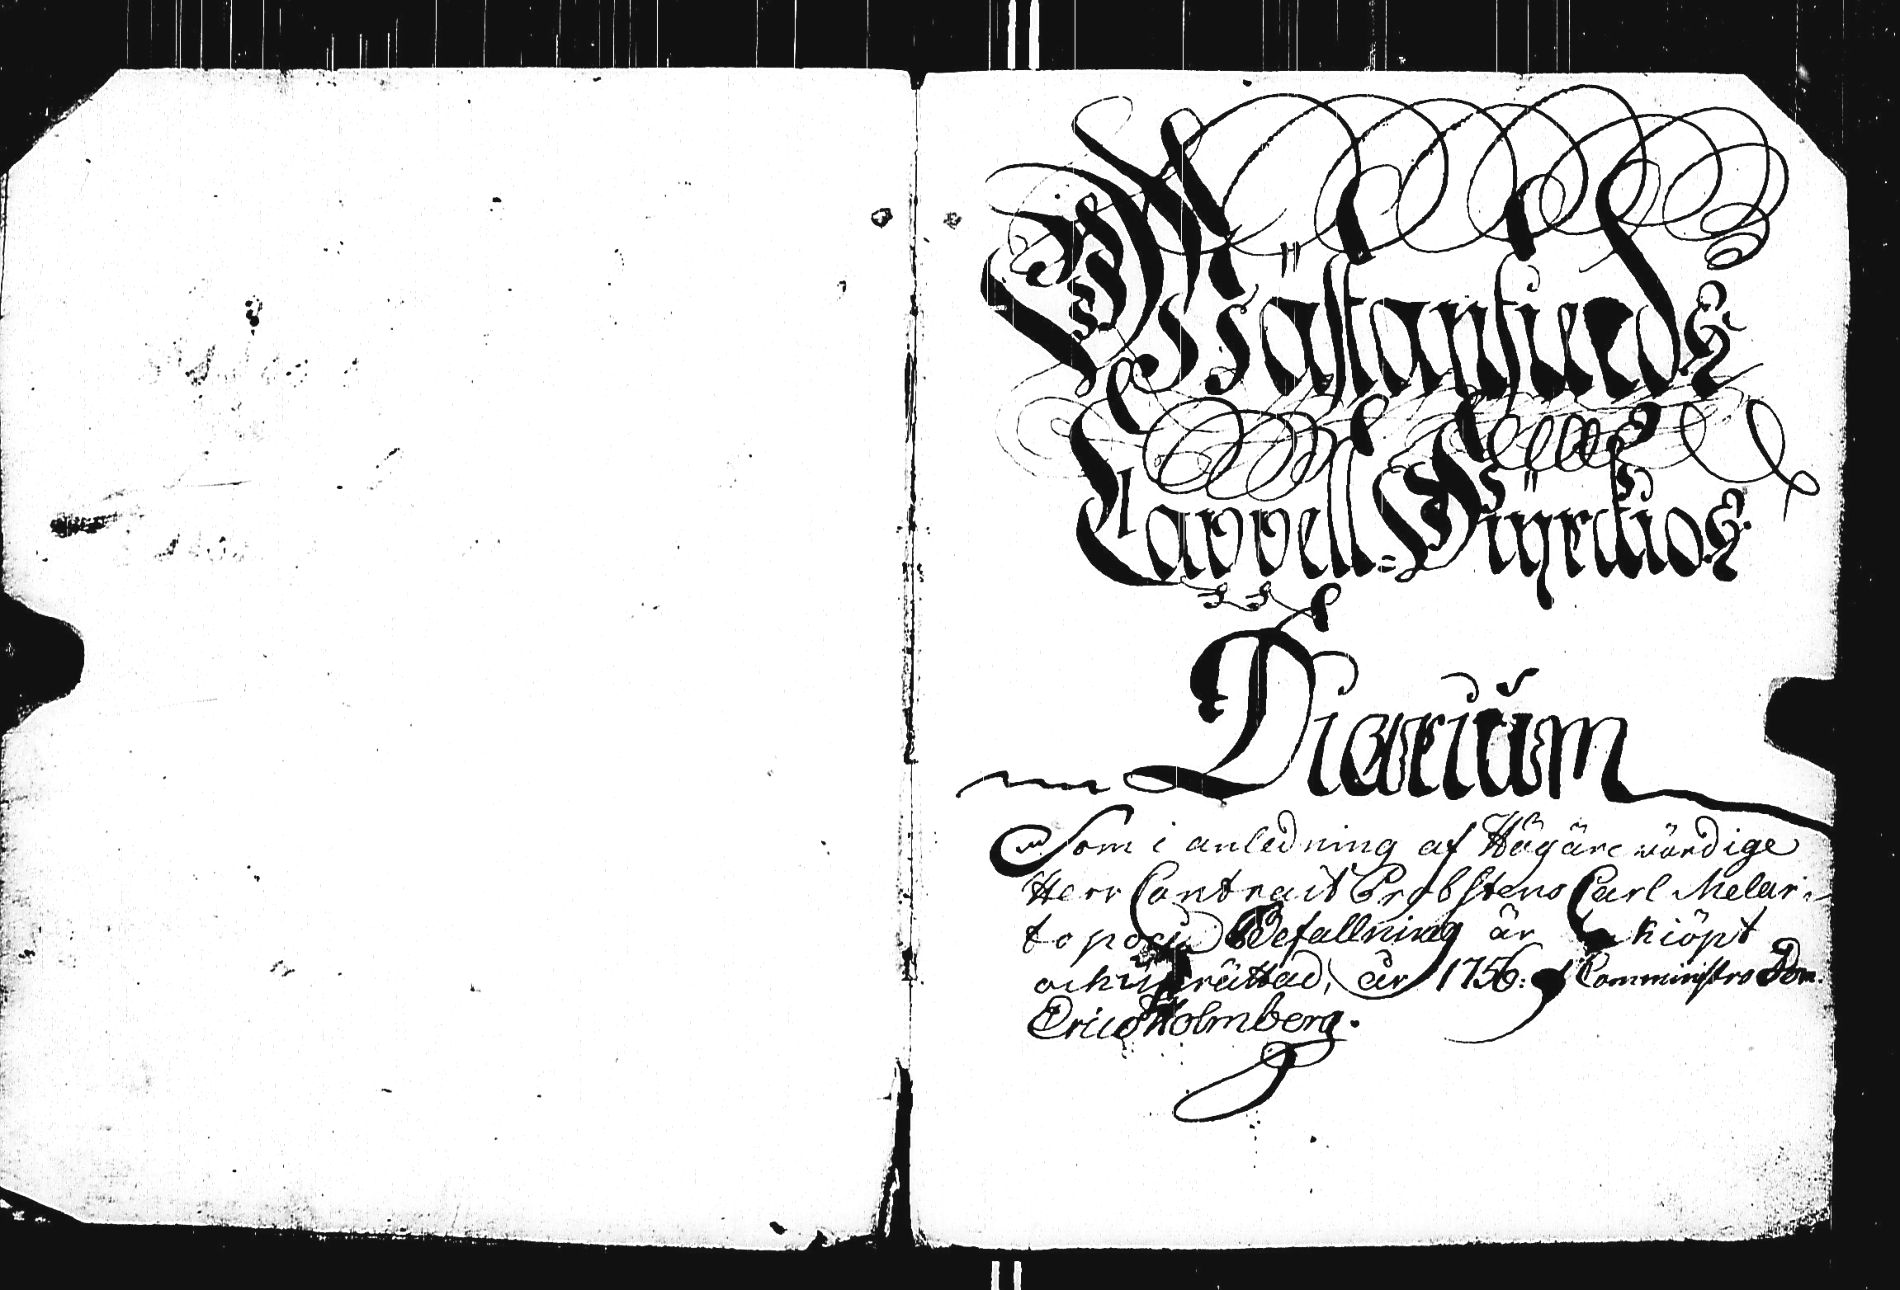 Wästanfierds
Cappell=Kÿrckios
Diarium
Som i anledning af Högäre wördige
Herr Contract Probstens Carl Melar-
topoei Befallning är inkiöpt
och uprättad, år 1756: af Comministro Dom.
Erico Holmberg.